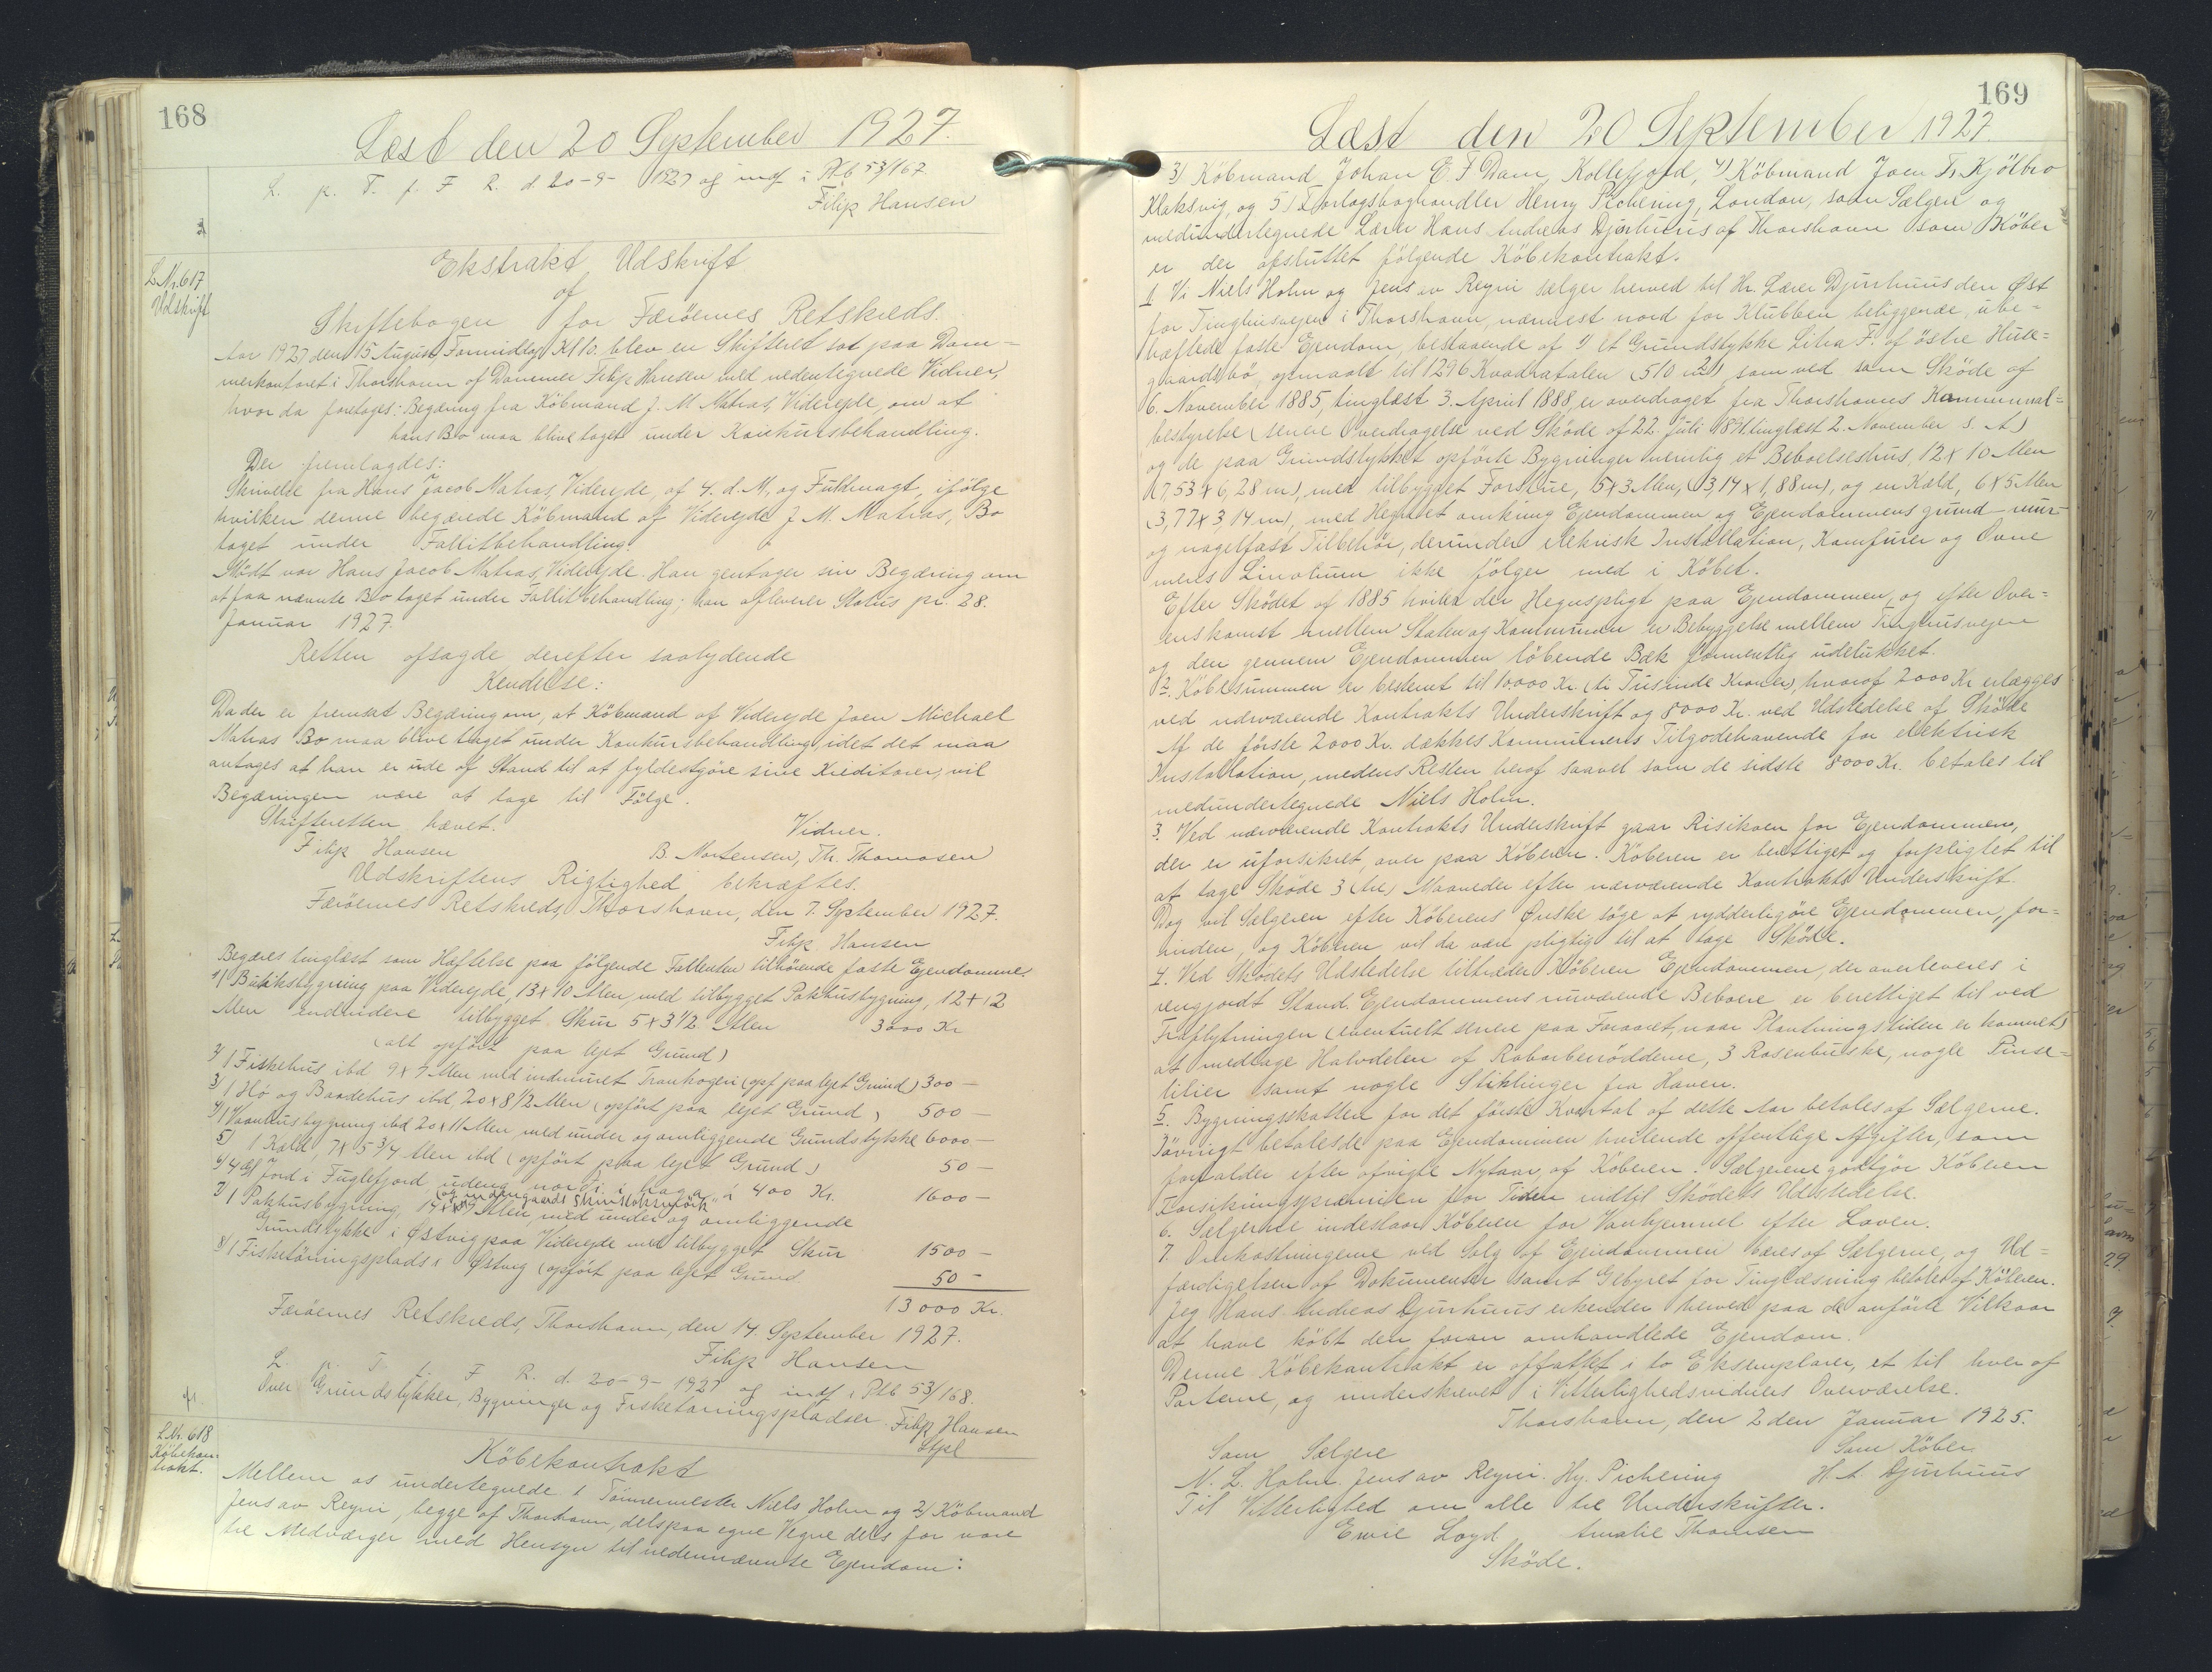 168
Læst den 20 September 1927.
L. p. T. f. F. R. d. 20-9-1927 og indf i Ptb 53/167
Filip Hansen
L.Nr. 617
Udskrift
Ekstrakt Udskrift
af
Skiftebogen for Færöernes Retskreds.
Aar 1927 den 15 August, Formiddag Kl 10. blev en Skifteret sat paa Dom=
merkontoret i Thorshavn af Dommer Filip Hansen med nedentegnede Vidner,
hvor da foretages: Begæring fra Köbmand J. M. Matras, Viderejde, om at
hans Bo maa blive taget under Konkursbehandling.
Der fremlagdes:
Skrivelse fra Hans Jacob Matras, Viderejde, af 4. d. M. og Fuldmagt, ifölge
hvilken denne begærede Köbmand af Viderejde J. M. Matras, Bo
taget under Fallitbehandling.
Mödt var Hans Jacob Matras, Viderejde. Han gentager sin Begæring om
at faa nævnte Bo taget under Fallitbehandling; han afleverer Status pr. 28.
Januar 1927.
Retten afsagde derefter saalydende
Kendelse:
Da der er fremsat Begæring om, at Köbmand af Viderejde Joen Michael
Matras Bo maa blive taget under Konkursbehandling, idet det maa
antages at han er ude af Stand til at fyldestgöre sine Kreditorer, vil
Begæringen være at tage til Fölge.
Skifteretten hævet.
Vidner.
Filip Hansen
B. Mortensen, Th. Thomasen
Udskriftens Rigtighed bekræftes.
Færöernes Retskreds, Thorshavn, den 7. September 1927.
Filip Hansen
Begæres tinglæst som Hæftelse paa fölgende Fallenten tilhörende faste Ejendomme.
1) 1 Butiksbygning paa Viderejde, 13 x 10 Alen, med tilbygget Pakhusbygning, 12 x 12
Alen endvidere tilbygget Skur 5 x 3 1/2 Alen 3000 Kr
(alt opfört paa lejet Grund)
2) 1 Fiskehus ibd 9 x 7 Alen med indmuret Trankogeri (opf paa lejet Grund) 300 —
3) 1 Hö og Baadehus ibd, 20 x 8 1/2 Alen (opfört paa lejet Grund) 500 —
4) 1 Vaanhusbygning ibd 20 x 11 Alen, med under og omliggende Grundstykke 6000 —
5) 1 Kald, 7 x 5 3/4 Alen ibd (opfört paa lejet Grund) 50 —
6) 4 Jord i Fuglefjord, udeng nordi i haga á 400 Kr. 1600 —
7) 1 Pakhusbygning, 14 x Alen, med under og omliggende
Grundstykke i Østvig paa Viderejde med tilbygget Skur 1500 —
8) 1 Fisketörringsplads i Østvig (opfört paa lejet Grund. 50 —
13000 Kr.
Færöernes Retskreds, Thorshavn, den 14. September 1927.
Filip Hansen
L. p. T. f. F. R. d. 20-9-1927 og indf i Ptb 53/168.
Over Grundstykker, Bygninger og Fisketörringspladser. Filip Hansen
Stpl
L.Nr. 618
Köbekon-
trakt.
Köbekontrakt
Mellem os undertegnede 1 Tömmermester Niels Holm og 2) Köbmand
Jens av Reyni, begge af Thorshavn, dels paa egne Vegne dels for vore
tre Medværger med Hensyn til nedennævnte Ejendom:
169
Læst den 20 September 1927.
3) Köbmand Johan E. F. Dam, Kollefjord, 4) Köbmand Joen Fr. Kjölbro
Klaksvig, og 5) Forlagsboghandler Henry Pichering, London, som Sælgere og
medundertegnede Lærer Hans Andreas Djurhuus af Thorshavn som Köber
er der afsluttet fölgende Köbekontrakt.
1. Vi Niels Holm og Jens av Reyni sælger herved til Hr. Lærer Djurhuus den Øst
for Tinghusvejen i Thorshavn, nærmest nord for Klubben beliggende, ube=
hæftede faste Ejendom, bestaaende af 1) et Grundstykke Litra F. af östre Huse=
gaards bö, opmaalt til 1296 Kvadratalen (510 m2), som ved som Sköde af
6. November 1885, tinglæst 3. April 1888, er overdraget fra Thorshavns Kommunal=
bestyrelse (senere Overdragelse ved Sköde af 22. Juli 1891, tinglæst 2. November s. A)
og de paa Grundstykket opförte Bygninger nemlig et Beboelseshus, 12 x 10 Alen
(7,53 x 6,28 m), med tilbygget Forstue, 5 x 3 Alen, (3,14 x 1,88 m), og en Kæld, 6 x 5 Alen
(3,77 x 3 14 m), med Hegnet omkring Ejendommen og Ejendommens grund- mur-
og nagelfast Tilbehör, derunder elekrisk Installation, Komfurer og Ovne
mens Linolium ikke fölger med i Köbet.
Efter Sködet af 1885 hviler der Hegnspligt paa Ejendommen, og efter Over=
enskomst mellem Staten og Kommunen er Bebyggelse mellem Tinghusvejen
og den gennem Ejendommen löbende Bæk formentlig udelukket.
2. Köbesummen er bestemt til 10.000 Kr. (ti Tusinde Kroner), hvoraf 2000 Kr. erlægges
ved nærværende Kontrakts Underskrift og 8000 Kr. ved Udstedelse af Sköde
Af de förste 2000 Kr. dækkes Kommunens Tilgodehavende for elektrisk
Installation, medens Resten heraf saavel som de sidste 8000 Kr. betales til
medundertegnede Niels Holm.
3. Ved nærværende Kontrakts Underskrift gaar Risikoen for Ejendommen,
der er uforsikret, over paa Köberen. Köberen er berettiget og forpligtet til
at tage Sköde 3 (tre) Maaneder efter nærværende Kontrakts Underskrift.
Dog vil Sælgeren efter Köberens Ønske söge at rydderliggöre Ejendommen, for=
inden, og Köberen vil da være pligtig til at tage Sköde.
4. Ved Sködets Udstedelse tiltræder Köberen Ejendommen, der overleveres i
rengjordt Stand. Ejendommens nuværende Beboere er berettiget til ved
Fraflytningen (eventuelt senere paa Foraaret, naar Plantningstiden er kommet)
at medtage Halvdelen af Rabarberrödderne, 3 Rosenbuske, nogle Pinse=
lilier samt nogle Stiklinger fra Haven.
5. Bygningsskatten for det förste Kvartal af dette Aar betales af Sælgerne.
Iövrigt betales de paa Ejendommen hvilende offentlige Afgifter, som
forfalder efter afvigte Nytaar af Köberen. Sælgerene godtgör Köberen
Forsikringspræmien for Tiden indtil Sködets Udstedelse.
6. Sælgerne indestaar Köberen for Vanhjemmel efter Loven.
7. Omkostningerne ved Salg af Ejendommen bæres af Sælgerne, og Ud=
færdigelsen af Dokumenter samt Gebyret for Tinglæsning betales af Köberen.
Jeg Hans Andreas Djurhuus erkender herved paa de anförte Vilkaar
at have köbt den foran omhandlede Ejendom.
Denne Köbekontrakt er affattet i to Eksemplarer, et til hver af
Parterne, og underskrevet i Vitterlighedsvidners Overværelse.
Thorshavn, den 2 den Januar 1925.
Som Sælgere
Som Köber
N. L. Holm. Jens av Reyni. Hy. Pichering
H. A. Djurhuus
Til Vitterlighed om alle tre Underskrifter.
Ewie Loyd Amalie Thomsen
Sköde.